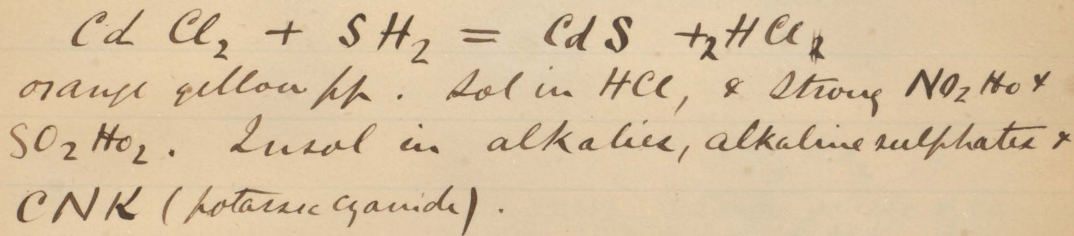 Cd Cl₂ + SH₂ = CdS + ₂HCl₂
orange yellow pp. Sol in HCl, & strong NO₂Ho &
SO₂Ho₂. Insol in alkalies, alkaline sulphates &
CNK (potassic cyanide).